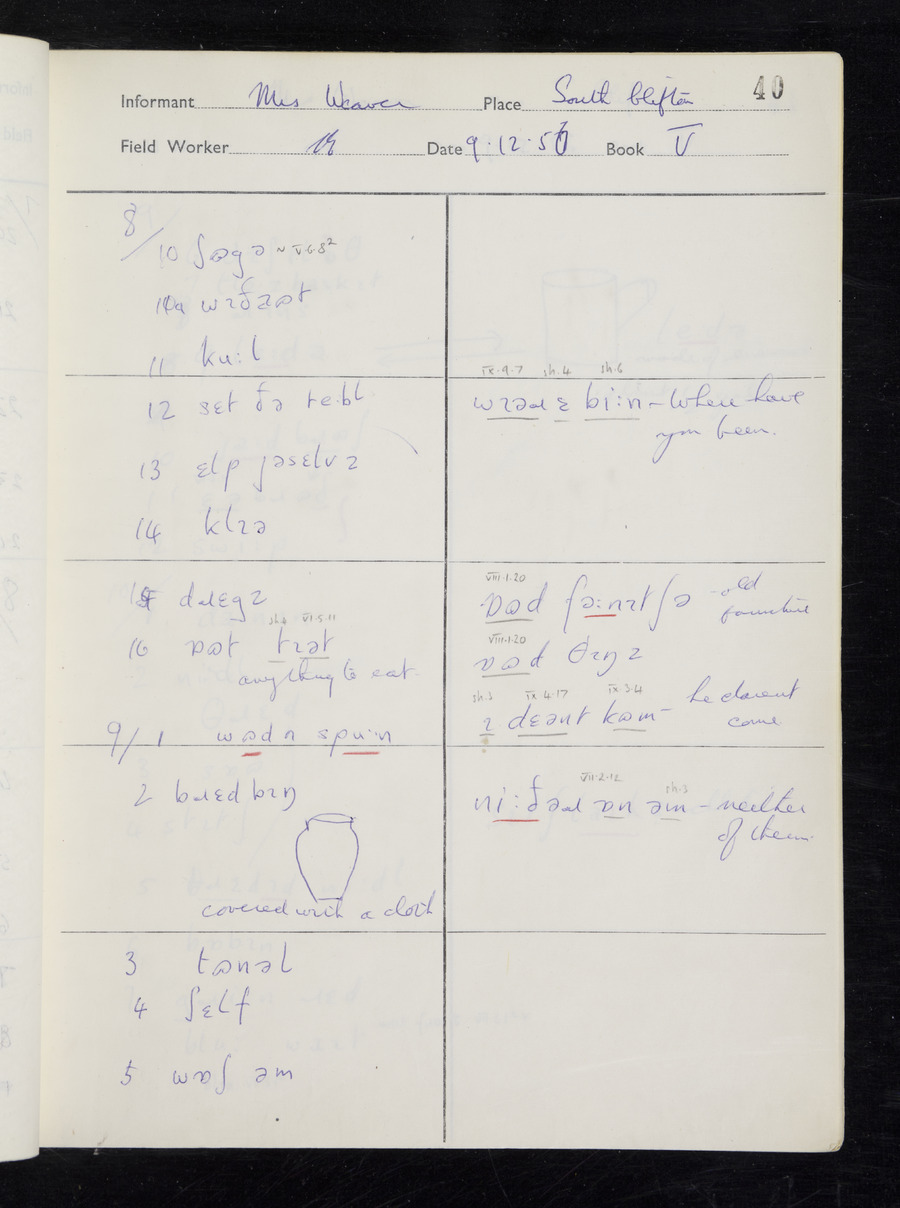 40
Informant Mrs Weaver Place South Clifton
Field Worker Date 9.12.56 Book V
8/10 ʃɷgə ~ V.6.8²
10a wɪðaɷt
11 kuːl
12 sɛt ðə teːbl
13 ɛlp jəsɛlvz
14 klɪə
15 dɹɛgz
16 ɒɷt tɪət
sh.4 VI.5.11
anything to eat
9/1 wɷdn spuːn
2 bɹɛdbɪŋ
covered with a cloth
3 tɷnəl
4 ʃɛlf
5 wɒʃ əm
IX.9.7 sh.4 sh.6
wɪəɹ ɛ biːn – where have
you been.
VIII.1.20
ɒɷd fəːnɪtʃə – old
furniture
VIII.1.20
ɒɷd θɪŋz
sh.3 IX.4.17 IX.3.4
ɪ dɛənt kɷm – he daren't
come
VII.2.12 sh.3
niːðəɹ ɒn əm – neither
of them